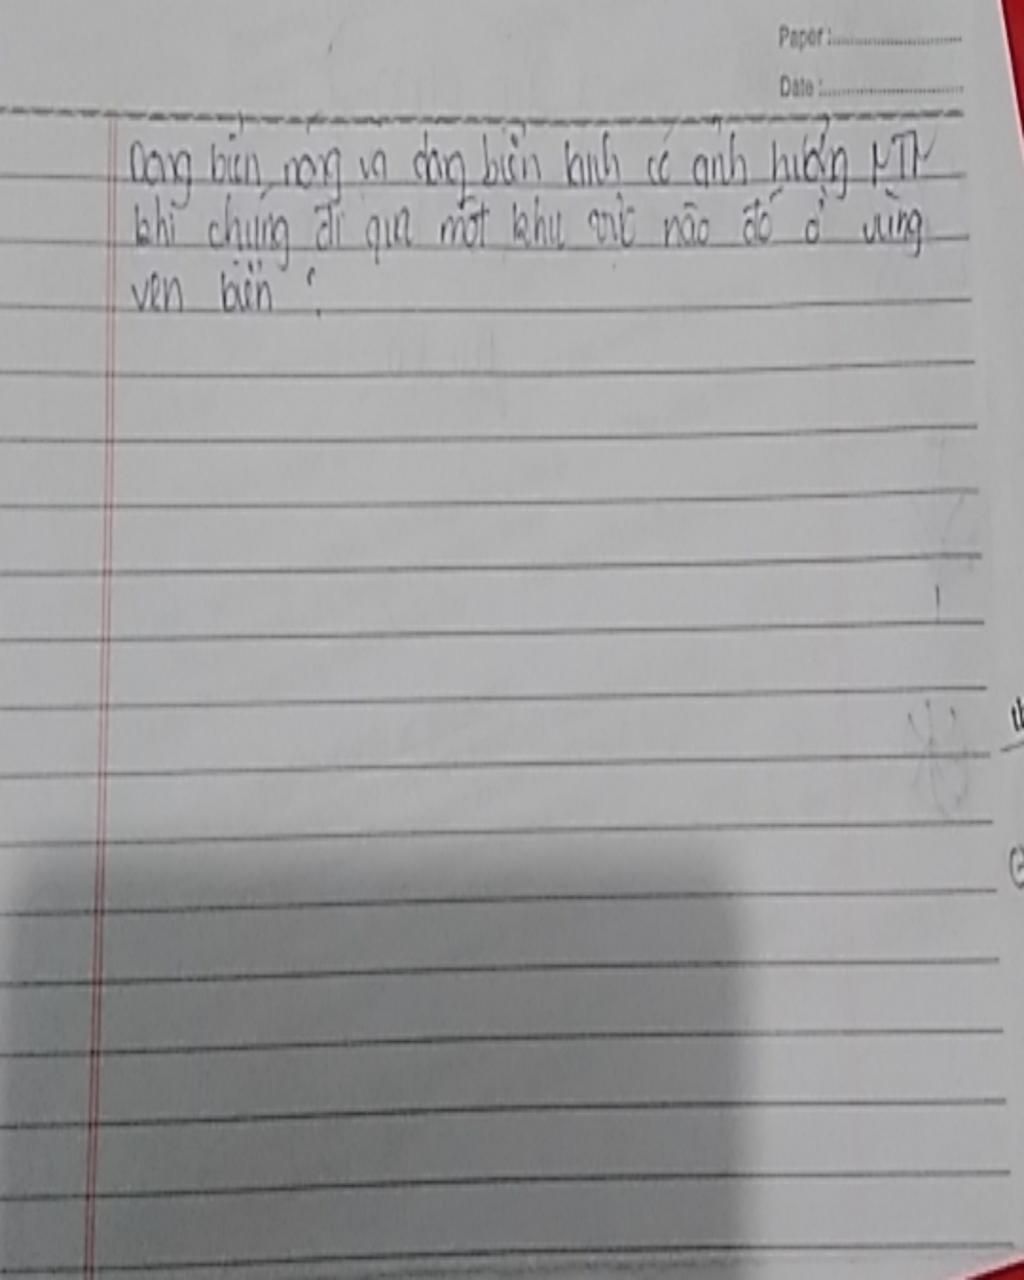 Paper :
Date :
Dòng biển nóng và dòng biển lạnh có ảnh hưởng NTN
khi chúng đi qua một khu vực nào đó ở vùng
ven biển ?